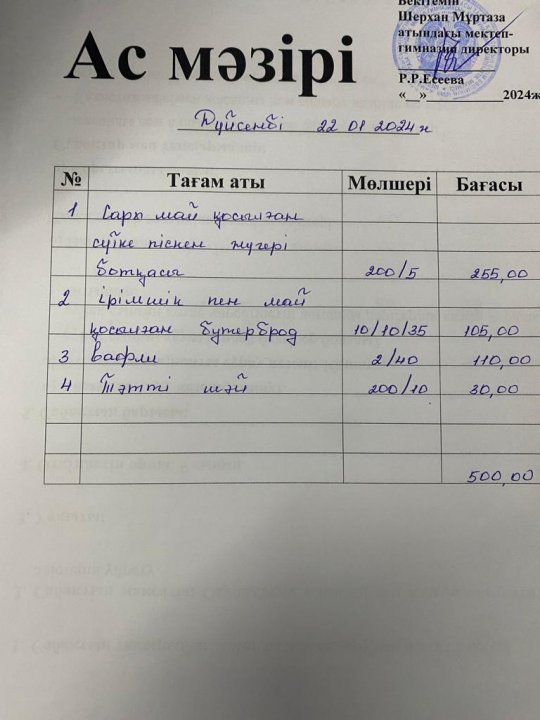 Бекітемін
Шерхан Мұртаза
атындағы мектеп-
гимназия директоры
Р.Р.Есеева
«__»____________2024ж
Ас мәзірі
Дүйсенбі 22 01 2024ж
№ Тағам аты Мөлшері Бағасы
1 Сары май қосылған
сүтке піскен жүгері
ботқасы 200/5 255,00
2 ірімшік пен май
қосылған бутерброд 10/10/35 105,00
3 вафли 2/40 110,00
4 Тәтті шәй 200/10 30,00
500,00